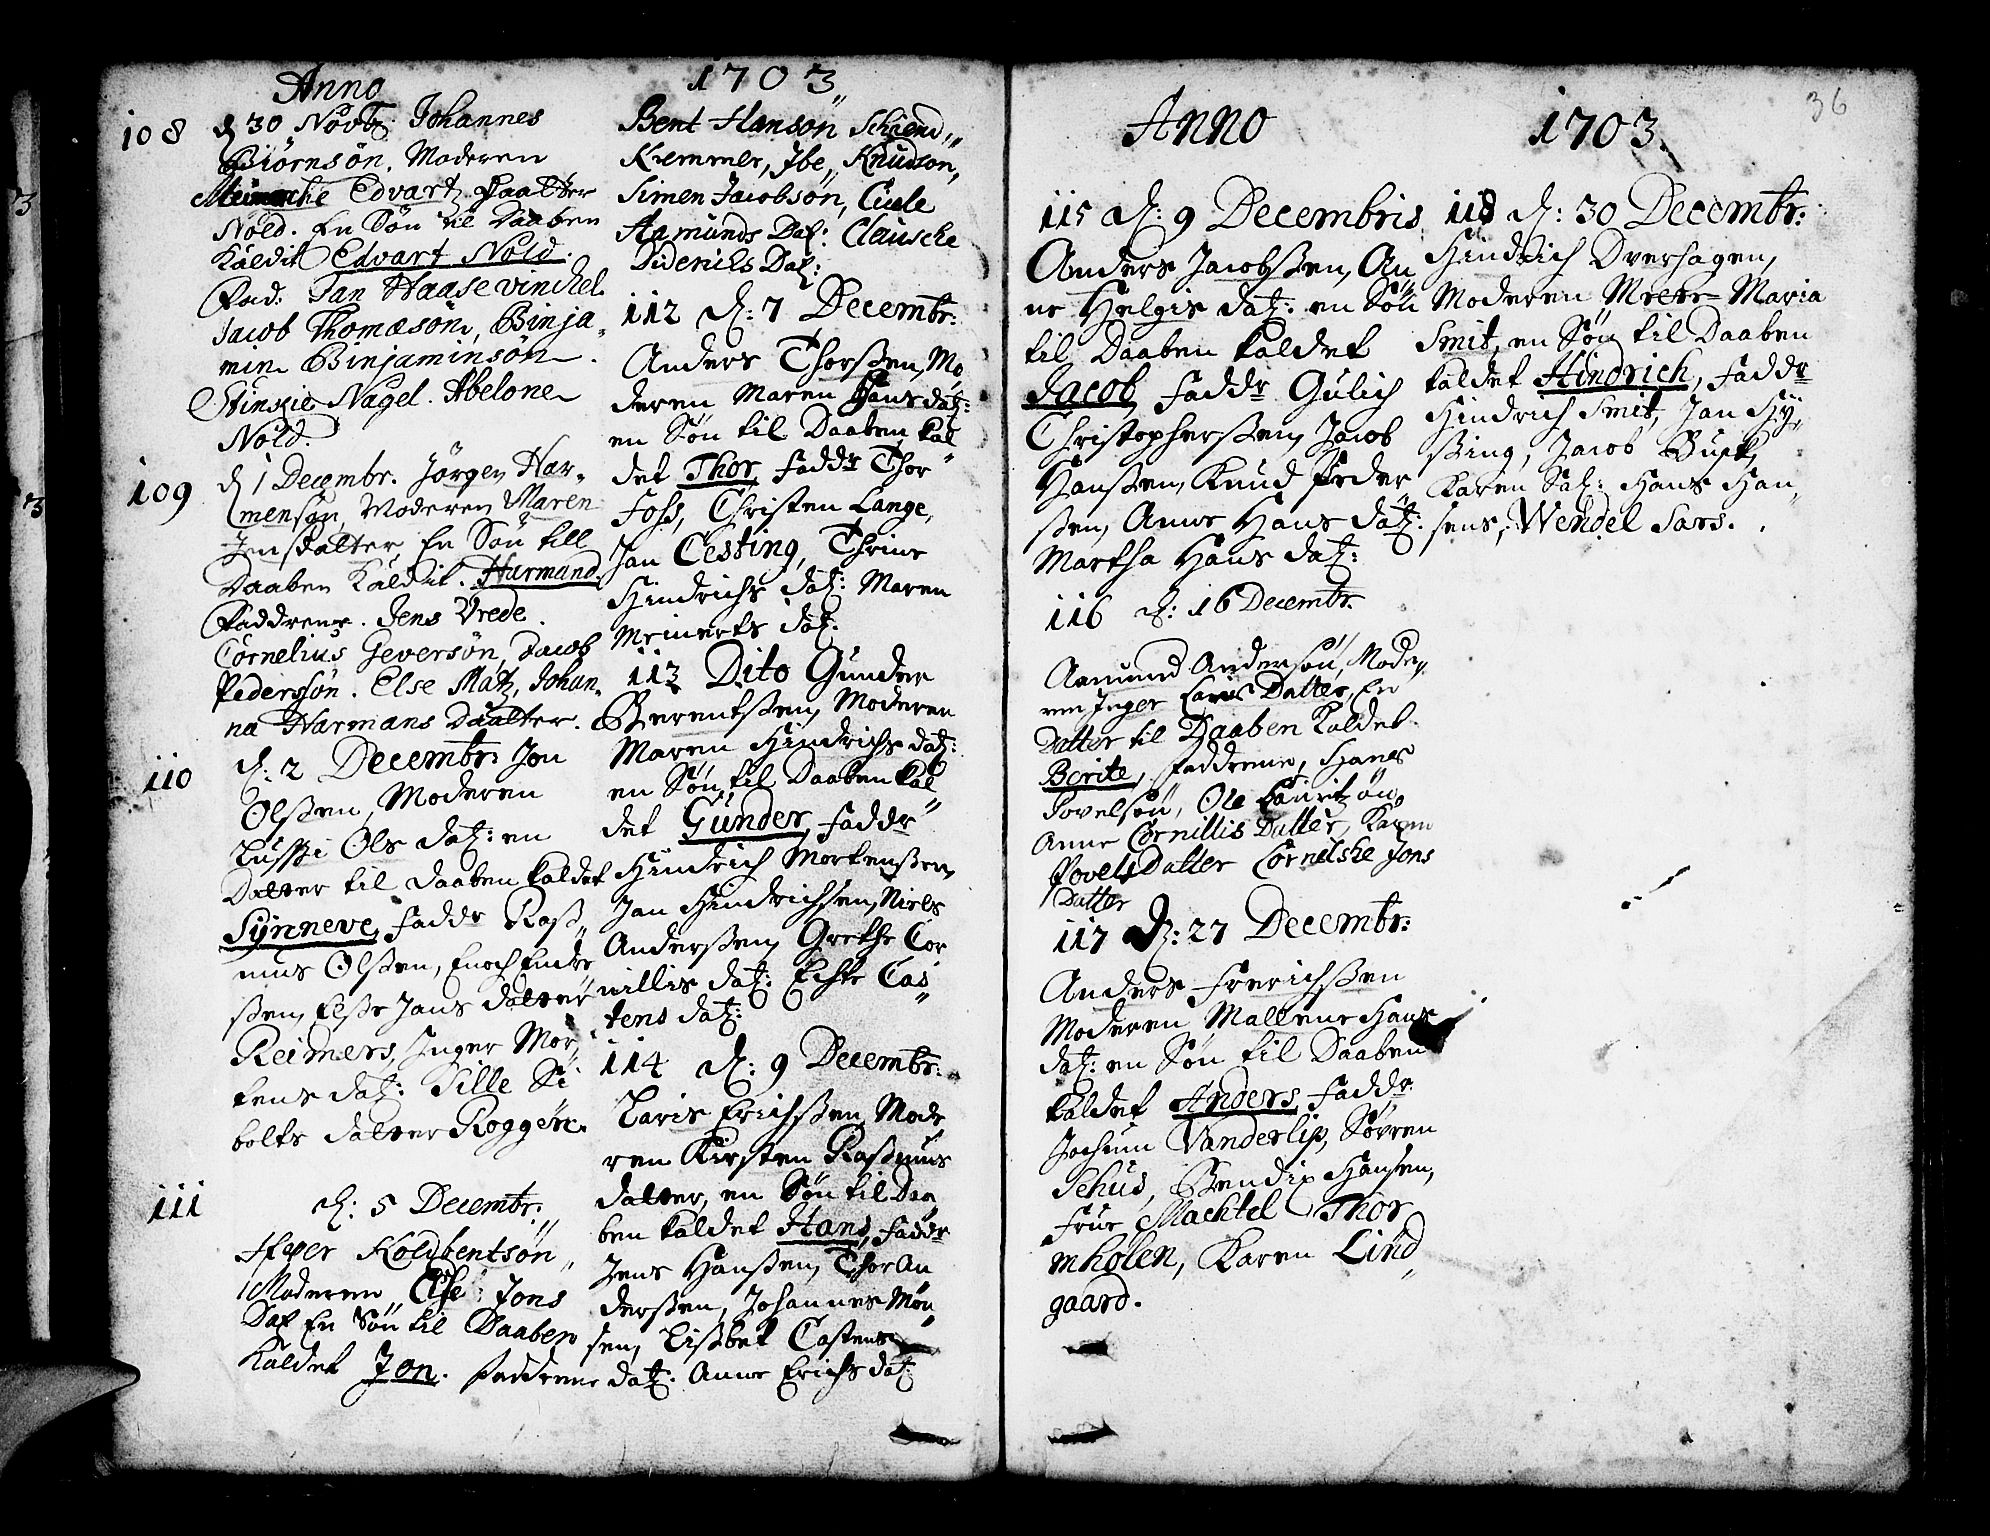 Anno 1703
108 d 30 Novb: Johannes
Biörnsön. Moderen
Edvart Daatter
Nold. En Sön til Daaben
Kaldit Edvart Nold.
Fad: Jan Haasevinckel.
Jacob Thomæsön, Binja-
min Binjaminsön.
Stinskie Nagel. Abelone
Nold.
109 d 1 Decembr. Jörgen Har-
mensøn, Moderen Maren
Jensdatter, En Søn till
Daaben Kaldit. Harmand.
Faddrene. Jens Vrede.
Cornelius Geversön, Jacob
Pederssön. Else Matz, Johan-
na Harmans Daatter.
110 d: 2 Decembr: Jon
Olsßen, Moderen
Lussi Ols datz: en
Datter til daaben kaldet
Synneve, Faddr Raß-
mus Olsßen, Enoch Endre
ßen, Elße Jans datter
Reimers, Inger Mor-
tens datz: Sille Si-
bolts datter Roggen.
111 d: 5 Decembr:
Koldbentsön
Moderen Else Jons
Dat En Sön til Daaben
Kaldet Jon. Faddrene
Bent Hansön Schiend
Kremmer, Ibe Knudson,
Simen Jacobsön, Cicele
Aamunds Daz: Clausche
Dideriks Daz:
112 d: 7 Decembr:
Anders Thorsßen, Mo
deren Maren Hansdatz:
en Søn til Daaben kal-
det Thor, Faddr Thor
Foss, Christen Lange,
Jan Cesting, Thrine
Hindrichs datz: Maren
Meinerts datz:
113 Dito Gunder
Berentsßen, Moderen
Maren Hindrichs datz:
en Søn, til Daaben kal-
det Gunder, Faddr
Hindrich Mortensßen,
Jan Hindrichsen, Niels
Andersßen, Grethe Cor
nillis datz: Eichte Cas-
tens datz:
114 d: 9 Decembr:
Laris Erichsßen, Mode
ren Kirsten Raßmus
datter, en Søn til Daa
ben kaldet Hans, Faddr
Jens Hansßen, Thor An
dersßen, Johannes Mön-
sen, Lißbet Castens
datz. Anne Erichs datz:
36
Anno 1703.
115 d: 9 Decembris
Anders Jacobsßen, An
ne Helgis datz: en Søn
til Daaben kaldet
Jacob, Faddr Gulich
Christophersßen, Jacob
Hansßen, Knud Peder
ßen, Anne Hans datz:
Martha Hans datz:
116 d: 16 Decembr.
Aamund Andersön, Mode-
ren Inger Datter, En
Datter til Daaben Kaldet
Berite, Faddrene, Hans
Povelsön, Ole Lauritzön,
Anne Cornillis Datter, Karen
Povels Datter Cornelske Jons
Datter
117 d: 27 Decembr:
Anders Frerichsßen
Moderen Mallene Hans
datz: en Søn til Daaben
kaldet Anders, Faddr:
Jochum Vanderlip, Sövren
Schus, Bendix Hansen,
Frue Machtel Thor
mholen, Karen Lind-
gaard.
118 d: 30 Decembr:
Hindrich Overhagen,
Moderen Mrete Maria
Smit, en Søn til Daaben
kaldet Hindrich, Faddr
Hindrich Smit, Jan Hÿ-
ßing, Jacob Buck,
Karen Sal: Hans Han-
sens, Wendel Sars.